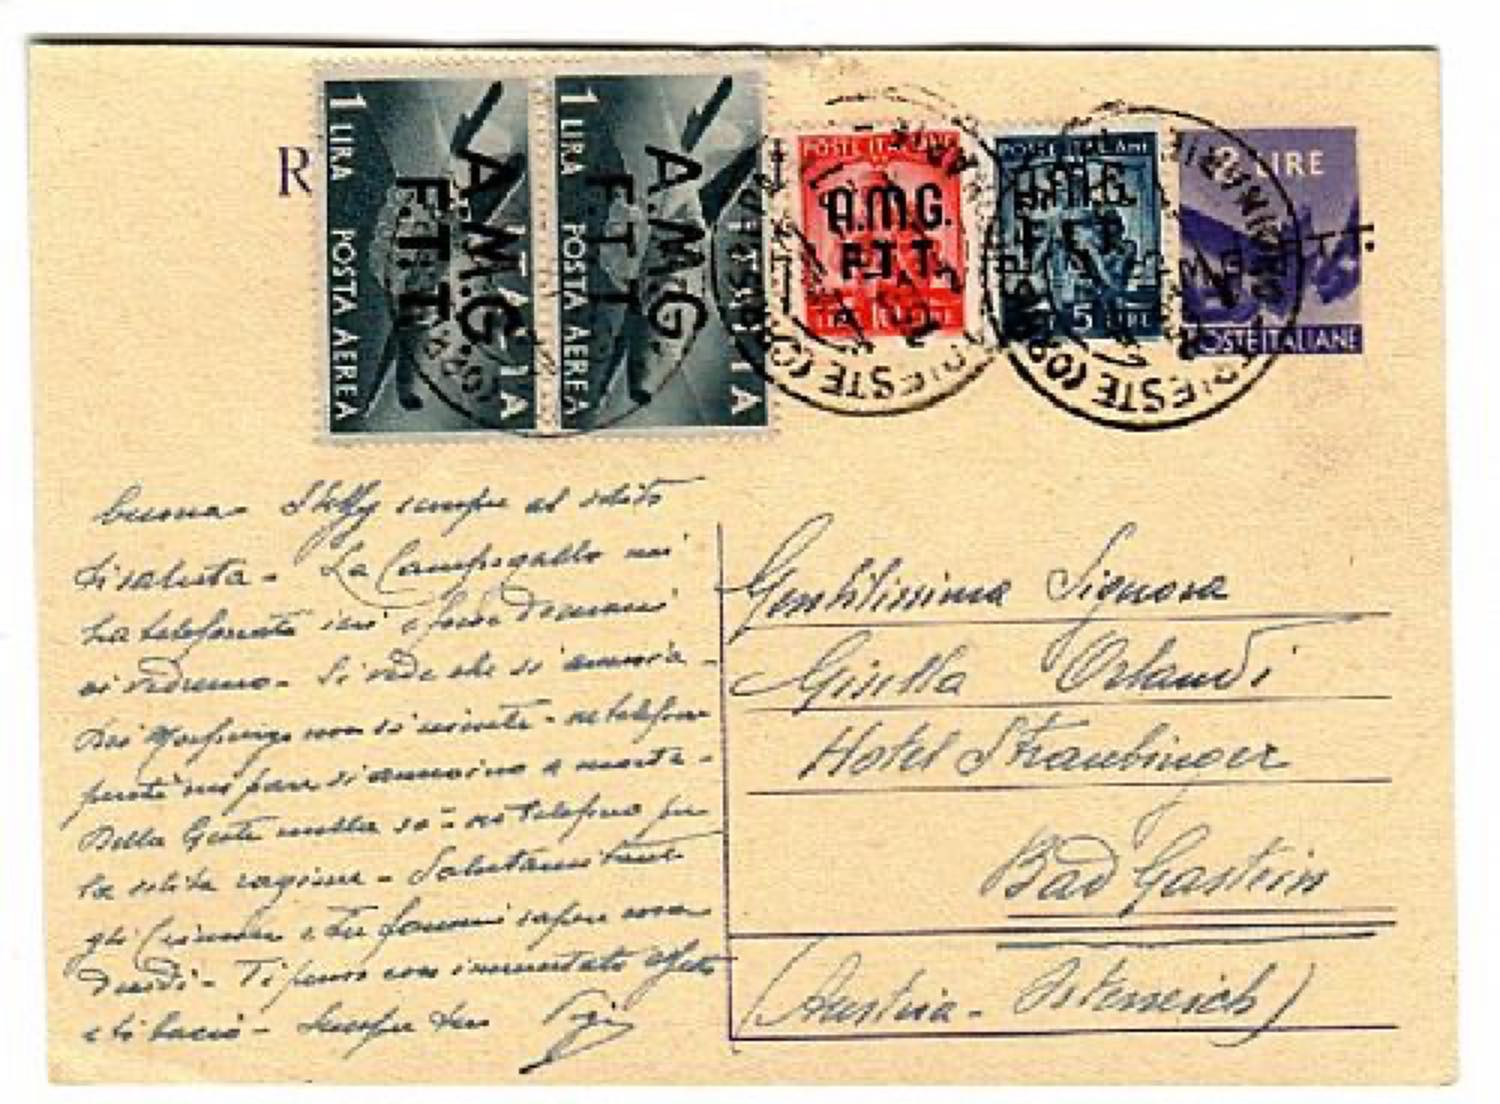 R
1 LIRA POSTA AEREA
A.M.G.
F.T.T.
1 LIRA POSTA AEREA
A.M.G.
F.T.T.
POSTE ITALIANE
A.M.G.
F.T.T.
POSTE ITALIANE
A.M.G.
F.T.T.
5 LIRE
LIRE
POSTE ITALIANE
TRIESTE
TRIESTE
buona Steffy sempre al solito
ti saluta - La Campogallo mi
ha telefonato ieri e forse domani
ci vedremo - Si vede che si annoia -
Dei non si - telefon
perché mi pare si annoino a morte -
Della nulla so - no telefono per
la solita ragione - Salutami tanto
gli e tu fammi sapere cosa
decidi - Ti penso con immutato affetto
e ti bacio - Sempre tua
Gentilissima Signora
Gisella Orlandi
Hotel Straubinger
Bad Gastein
(Austria - Österreich)